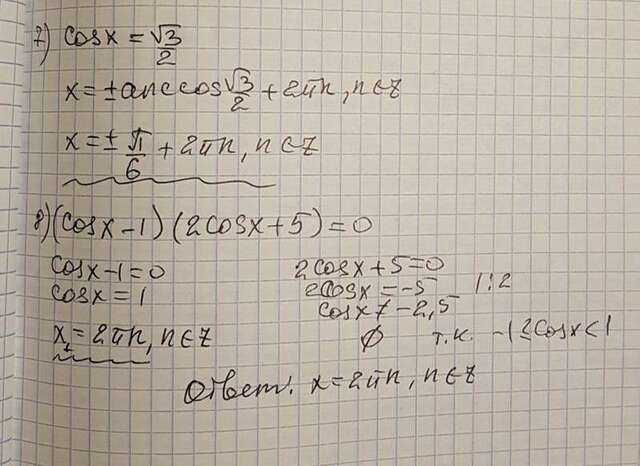 7) cosx = √3/2
x = ± arccos √3/2 + 2πn, n∈Z
x = ± π/6 + 2πn, n∈Z
8) (cosx-1)(2cosx+5)=0
cosx-1=0
cosx=1
x₁=2πn, n∈Z
2cosx+5=0
2cosx=-5 |:2
cosx≠-2,5
∅ т.к. -1≤cosx≤1
Ответ: x=2πn, n∈Z